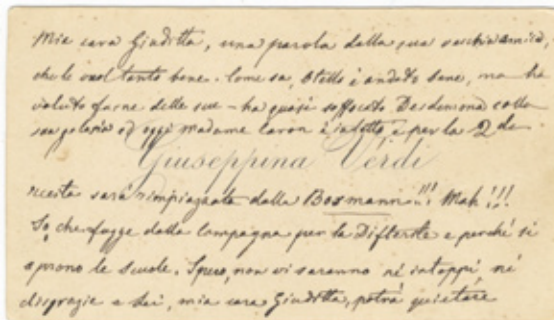 Mia cara Giuditta, una parola dalla sua vecchia amica,
che le vuol tanto bene. Come sa, Otello è andato bene, ma ha
voluto farne delle sue - ha quasi soffocato Desdemona colla
sua gelosia ed oggi madame Caron è in letto, e per la 2da
Giuseppina Verdi
recita sarà rimpiazzata dalla Bosmann!!! Mah!!!
So, che fugge dalla Campagna per la Difterite e perché si
aprono le Scuole. Spero, non vi saranno né intoppi, né
disgrazie e Lei, mia cara Giuditta, potrà quietare